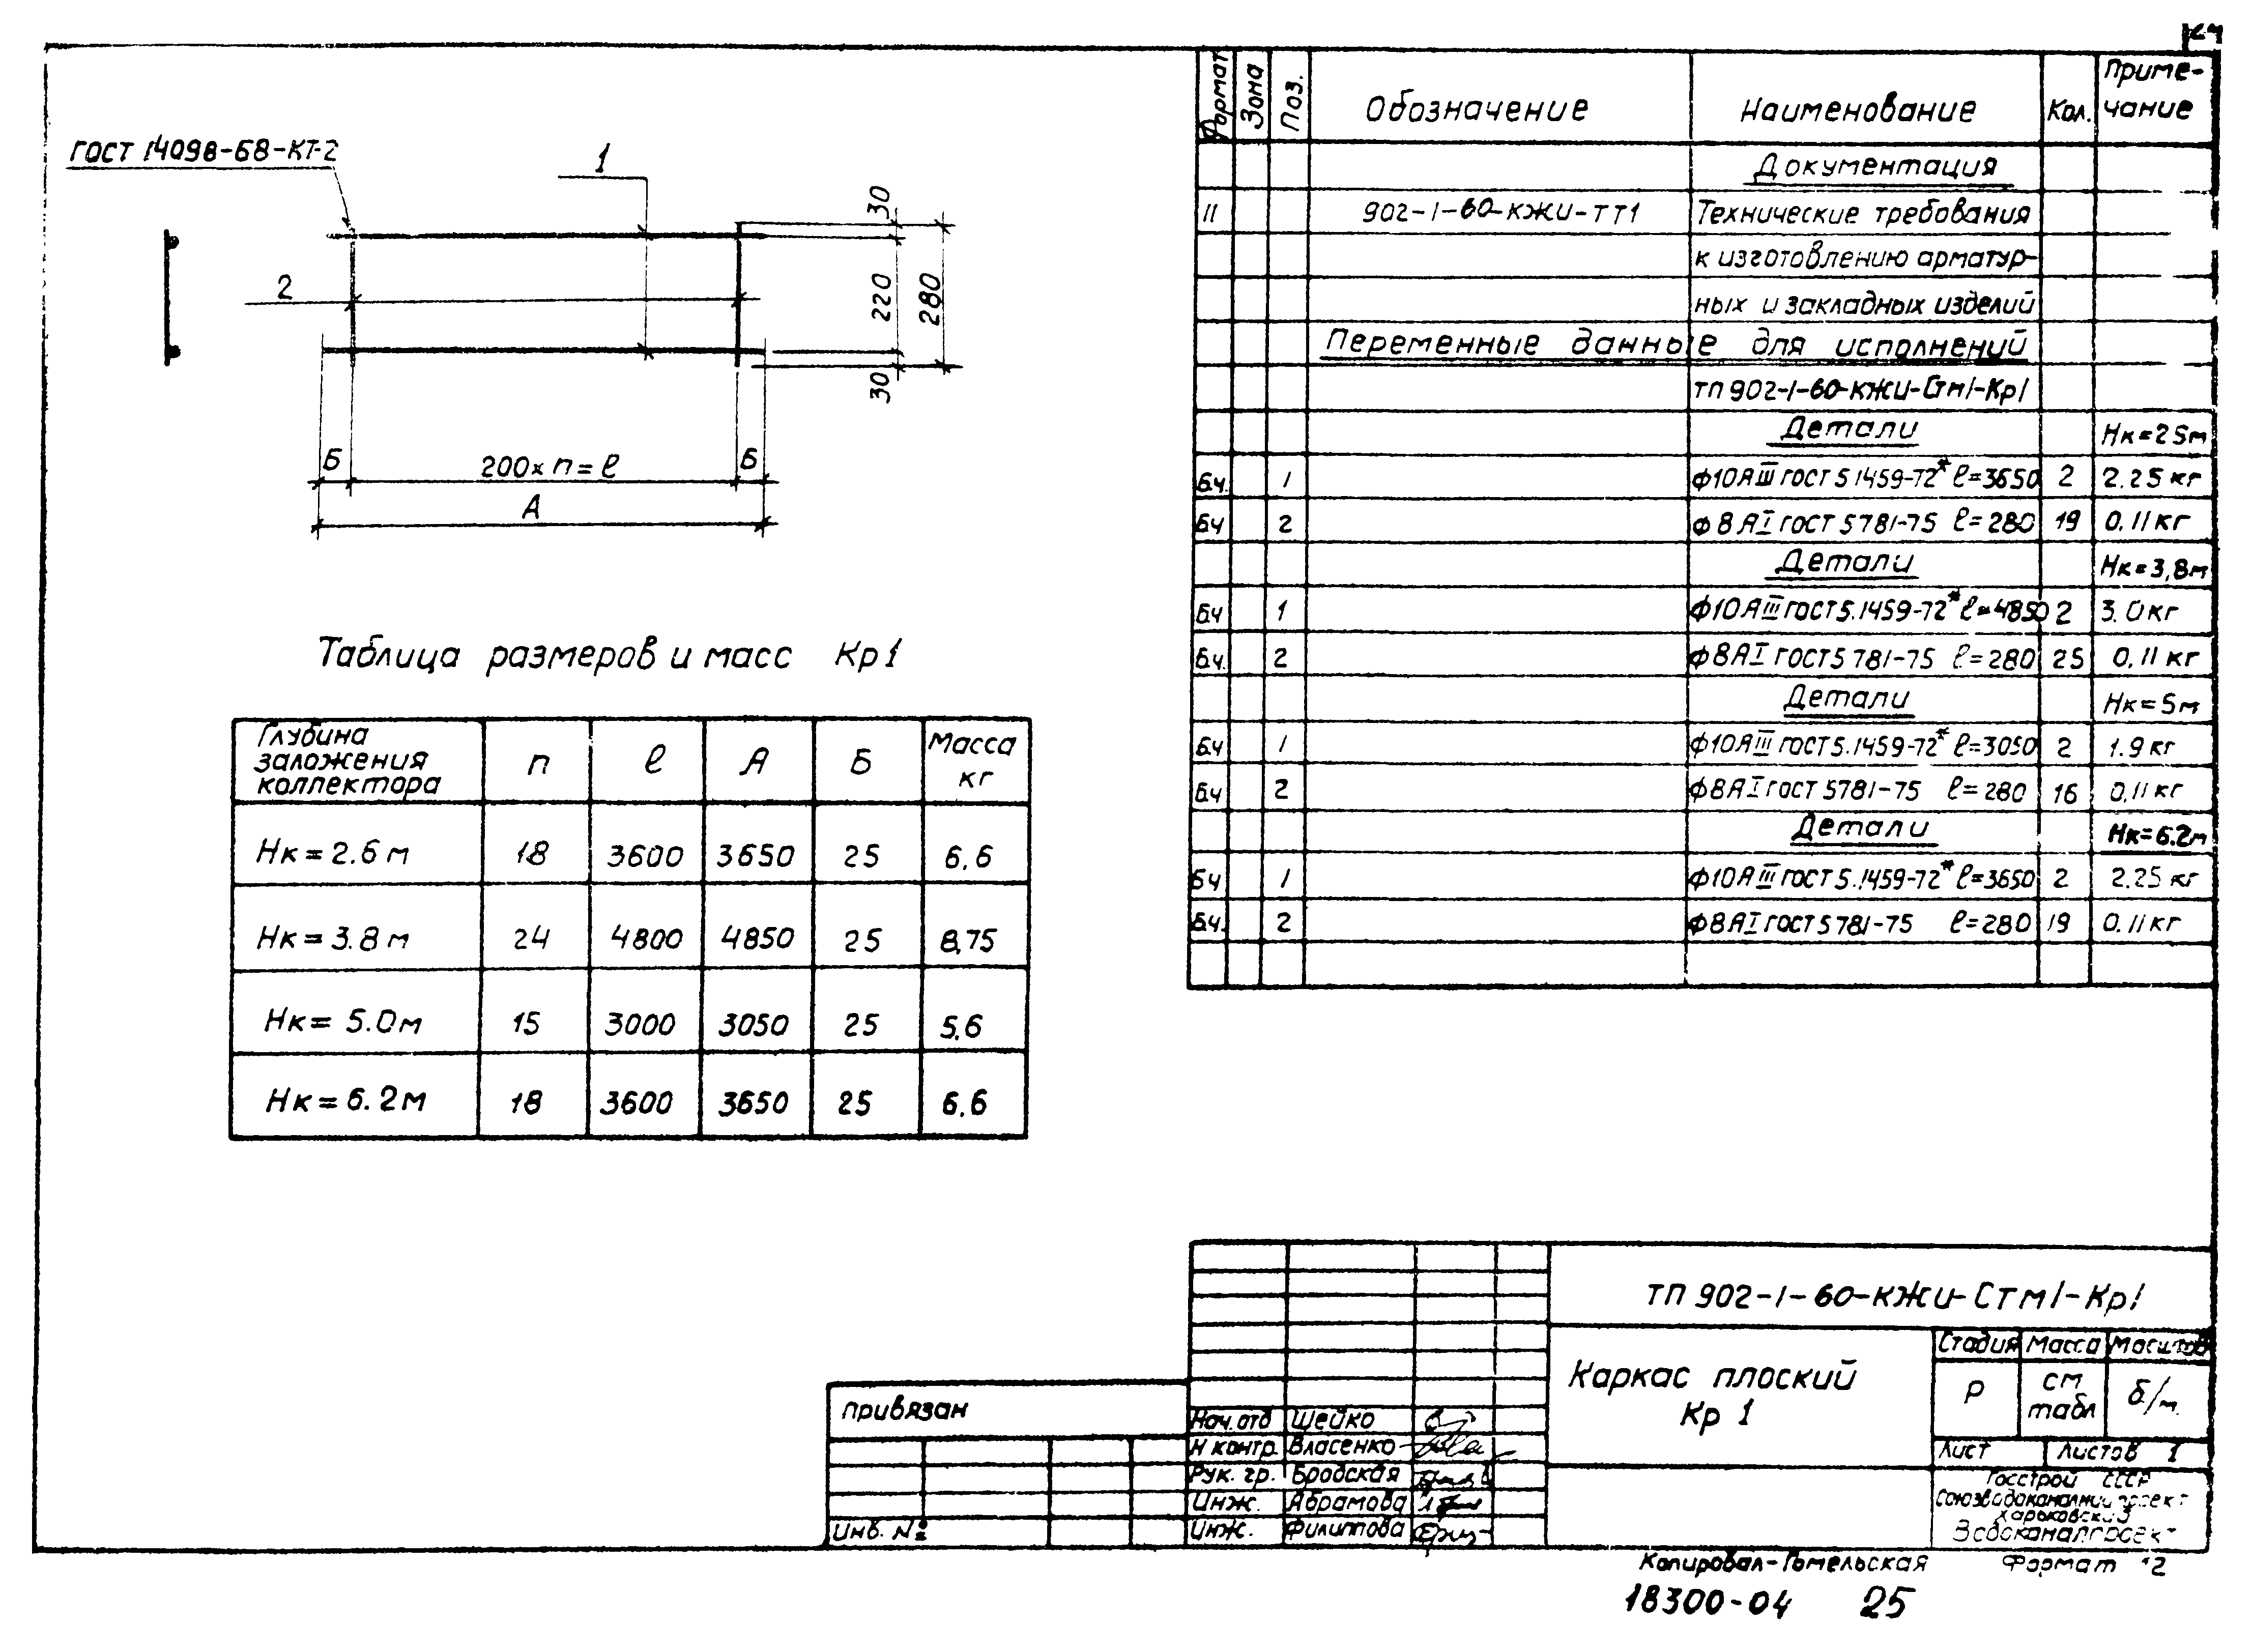 24
ГОСТ 14098-68-КТ-2
1
2
30
220
280
30
Б
200×п=ℓ
Б
А
Таблица размеров и масс Кр1
Глубина заложения коллектора | п | ℓ | А | Б | Масса кг
Нк=2.6м | 18 | 3600 | 3650 | 25 | 6,6
Нк=3.8м | 24 | 4800 | 4850 | 25 | 8,75
Нк=5.0м | 15 | 3000 | 3050 | 25 | 5,6
Нк=6.2м | 18 | 3600 | 3650 | 25 | 6,6
Формат | Зона | Поз. | Обозначение | Наименование | Кол. | Примечание
Документация
11 | 902-1-60-КЖИ-ТТ1 | Технические требования
к изготовлению арматур-
ных и закладных изделий
Переменные данные для исполнений
ТП902-1-60-КЖИ-Стм1-Кр1
Детали | Нк=25м
Б.ч. | 1 | ф10АIII ГОСТ 5.1459-72* ℓ=3650 | 2 | 2.25 кг
Б.ч | 2 | ф8АI ГОСТ 5781-75 ℓ=280 | 19 | 0.11кг
Детали | Нк=3,8м
Б.ч | 1 | ф10АIII ГОСТ 5.1459-72* ℓ=4850 | 2 | 3.0кг
Б.ч. | 2 | ф8АI ГОСТ 5781-75 ℓ=280 | 25 | 0,11 кг
Детали | Нк=5м
Б.ч | 1 | ф10АIII ГОСТ 5.1459-72* ℓ=3050 | 2 | 1.9 кг
Б.ч | 2 | ф8АI ГОСТ 5781-75 ℓ=280 | 16 | 0,11 кг
Детали | Нк=6.2м
Б.ч | 1 | ф10АIII ГОСТ 5.1459-72* ℓ=3650 | 2 | 2.25 кг
Б.ч. | 2 | ф8АI ГОСТ 5781-75 ℓ=280 | 19 | 0.11кг
ТП 902-1-60-КЖИ-Стм1-Кр1
Каркас плоский
Кр 1
Стадия | Масса | Масштаб
Р | см табл | б/м.
Лист | Листов 1
Госстрой СССР
Союзводоканалниипроект
Харьковский
Водоканалпроект
привязан
Инв. №
Нач.отд | Шейко
Н контр. | Власенко
Рук. гр. | Бродская
Инж. | Абрамова
Инж. | Филиппова
Копировал-Гомельская
Формат 12
18300-04 25